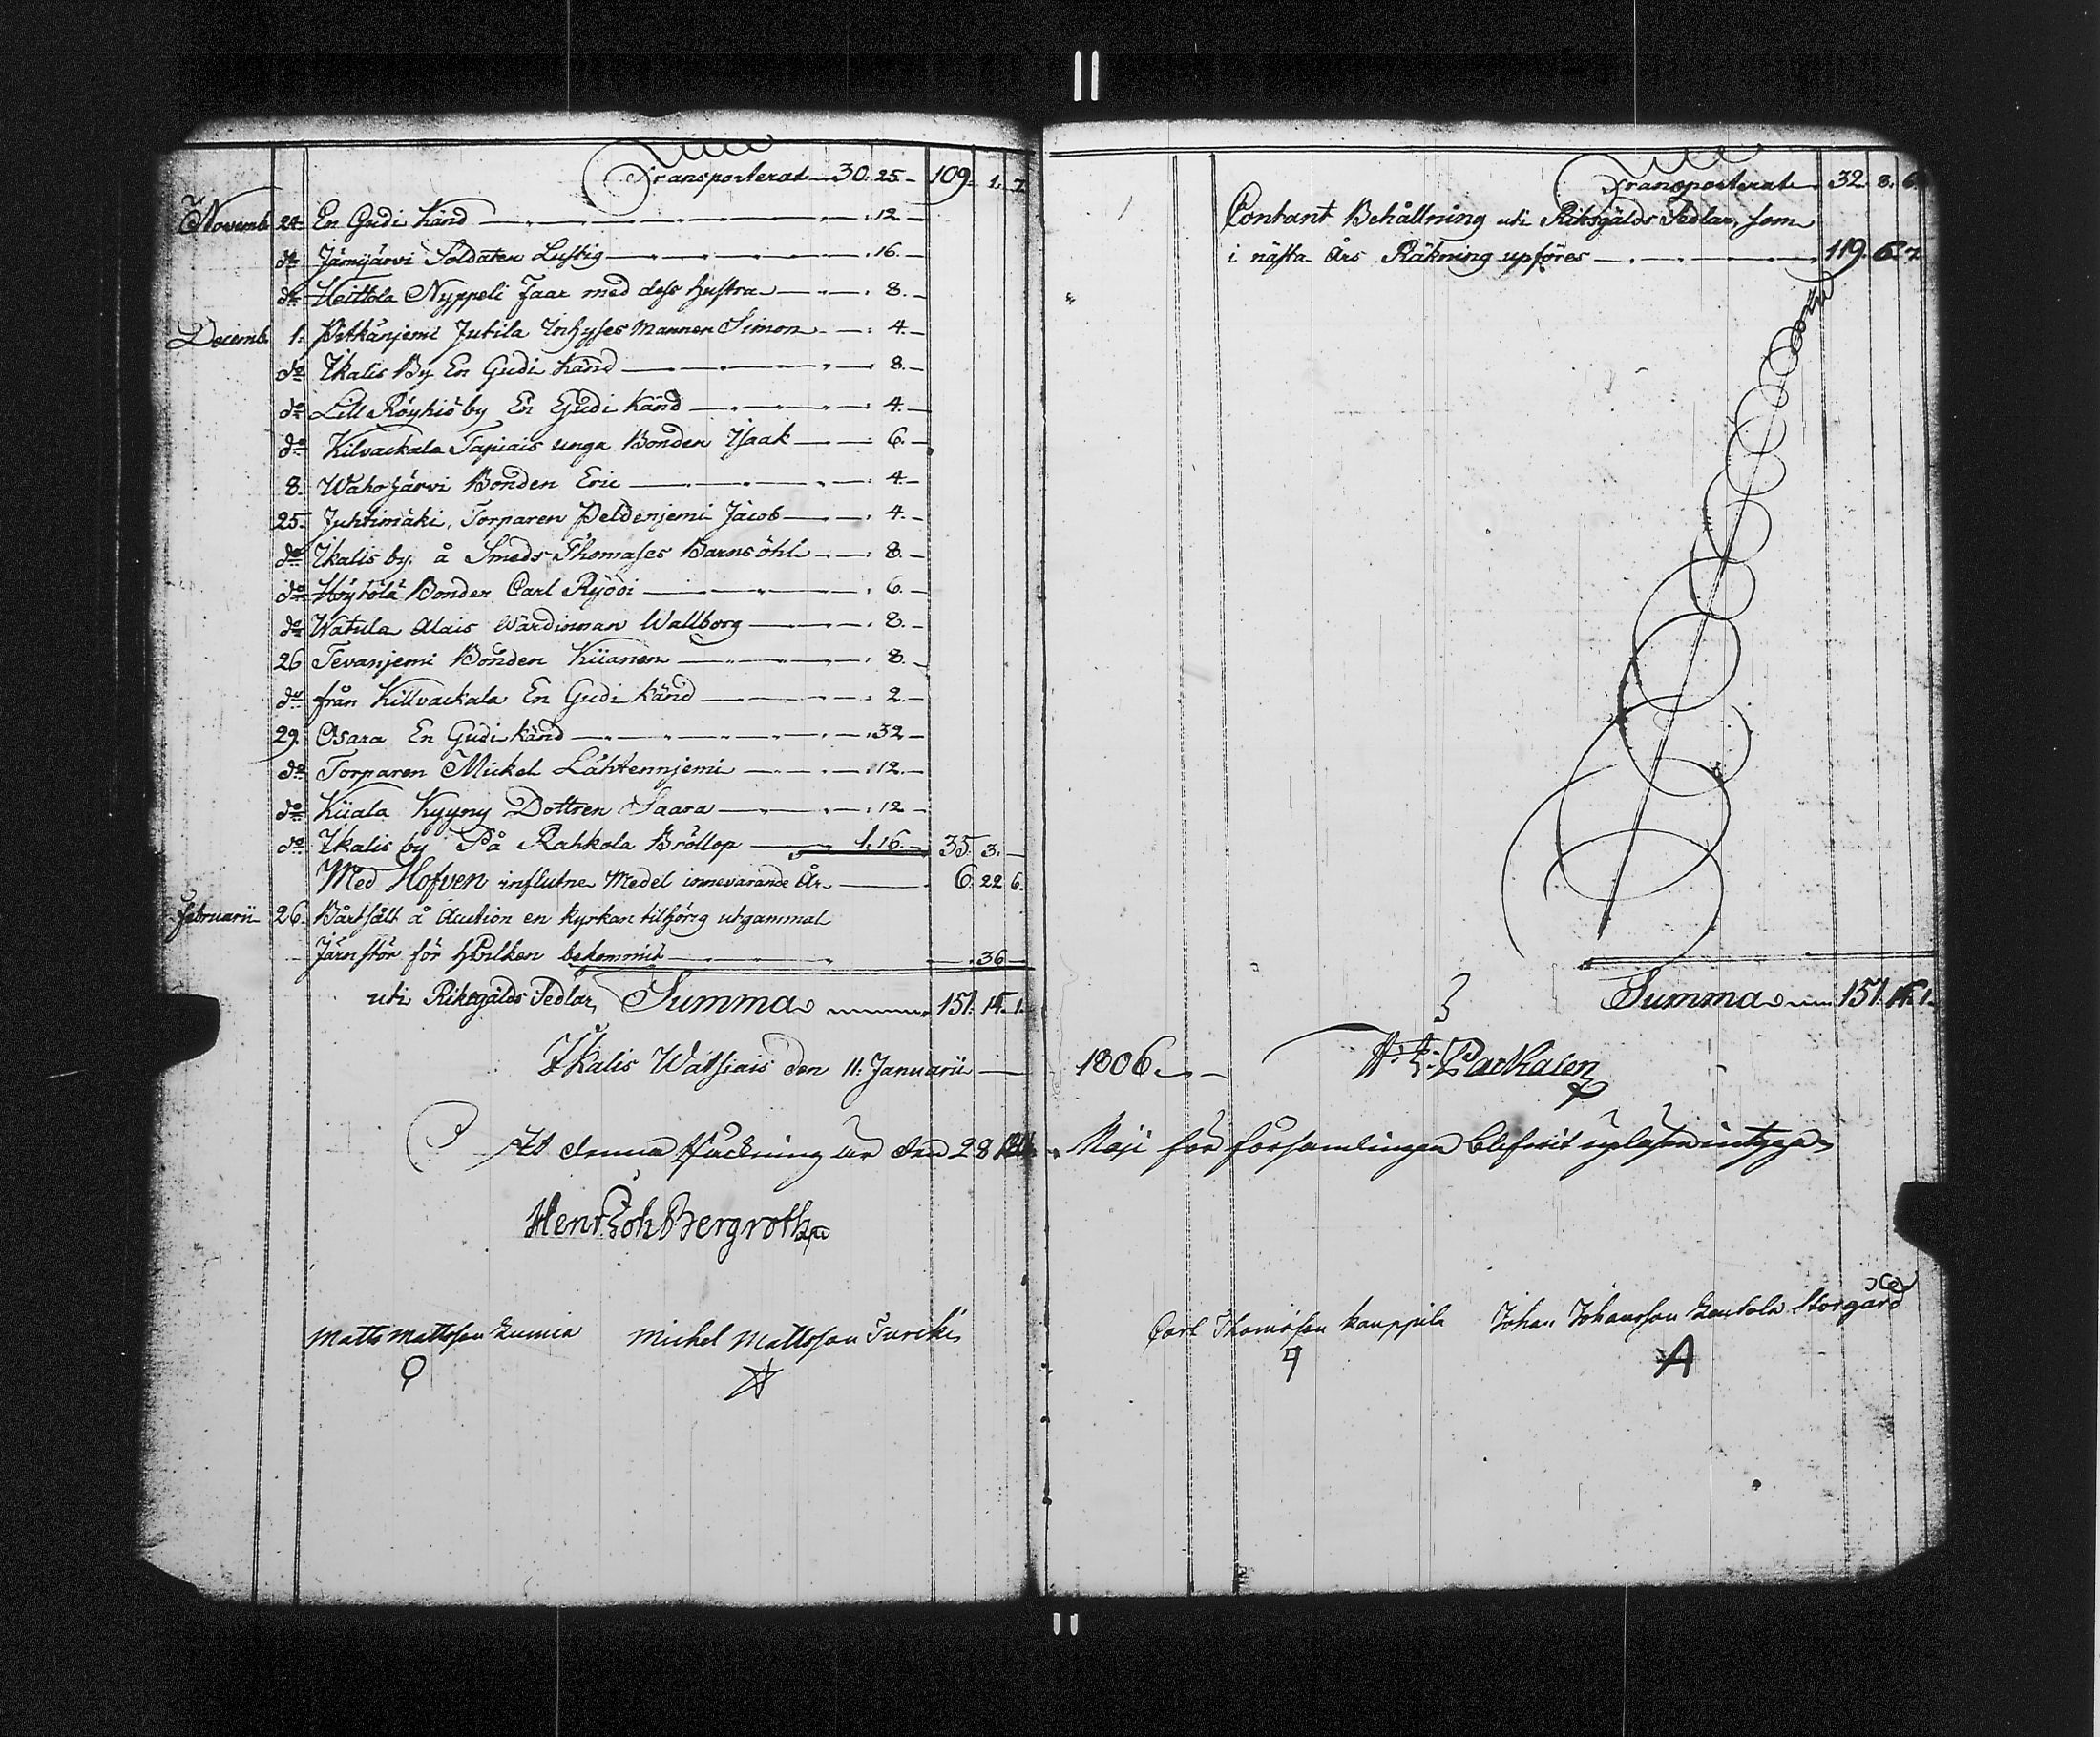 Transporterat 30. 25. 109. 1. 7
Novemb 24. En Gudi känd 12
do Jämijärvi Soldaten Lustig 16.
do Heittola Nyppeli Faar med dess hustru 8.
Decemb 1. Pitkänjemi Jutila Inhyses Mannen Simon 4.
do Ikalis By En Gudi känd 8.
do Lill Röyhiö by En Gudi känd 4.
do Kilvackala Tapiais unga Bonden Isaak 6.
8. Wahojärvi Bonden Eric 4.
25. Juhtimäki, Torparen Peldenjemi Jacob 4.
do Ikalis by. å Smeds Thomases Barnsöhl 8.
do Höytölä Bonden Carl Ryöði 6.
do Watula Alais Wärdinnan Wallborg 8.
26 Tevanjemi Bonden Kiianen 8.
do från Killvackala En Gudi känd 2.
29. Osara En Gudi känd 32
do Torparen Mickel Lähtennjemi 12.
do Kiiala Kyyny Dottren Saara 12
do Ikalis by På Rahkola Bröllop 1. 16. 35. 3.
Med Hofven influtne Medel innevarande År 6. 22 6.
Februarii 26. Bårtsält å Auction en kyrkan tilhörig utgammal
Järnstör för hvilken bekommit 36
uti Riksgälds Sedlar, Summa 151. 15. 1.
Ikalis Watsiais den 11. Januarii
At denna Räckning är den 28
Henr Joh Bergroth
Matts Mattsson Michel Mattsson
Transporterat 32. 8. 6.
Contant Behållning uti Riksgälds Sedlar, som
i nästa Års Räkning upföres 119. 6. 7
Summa 151. 15. 1.
1806.
Maji för församlingen blifwit upläsen intygar
Carl Thomasson Kauppila Johan Johansson Storgård
A